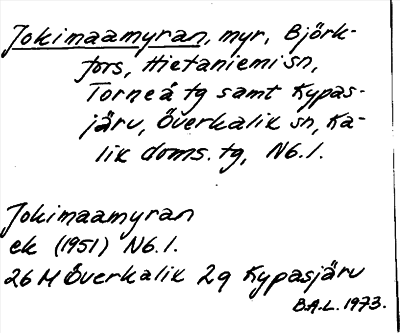 Jokimaamyran, myr, Björk-
fors, Hietaniemi sn,
Torneå tg samt Kypas-
järv, Överkalix sn, Ka-
lix doms. tg, Nb. l.
Jokimaamyran
ek (1951) Nb. l.
26 M Överkalix 2g Kypasjärv
B.A.L. 1973.